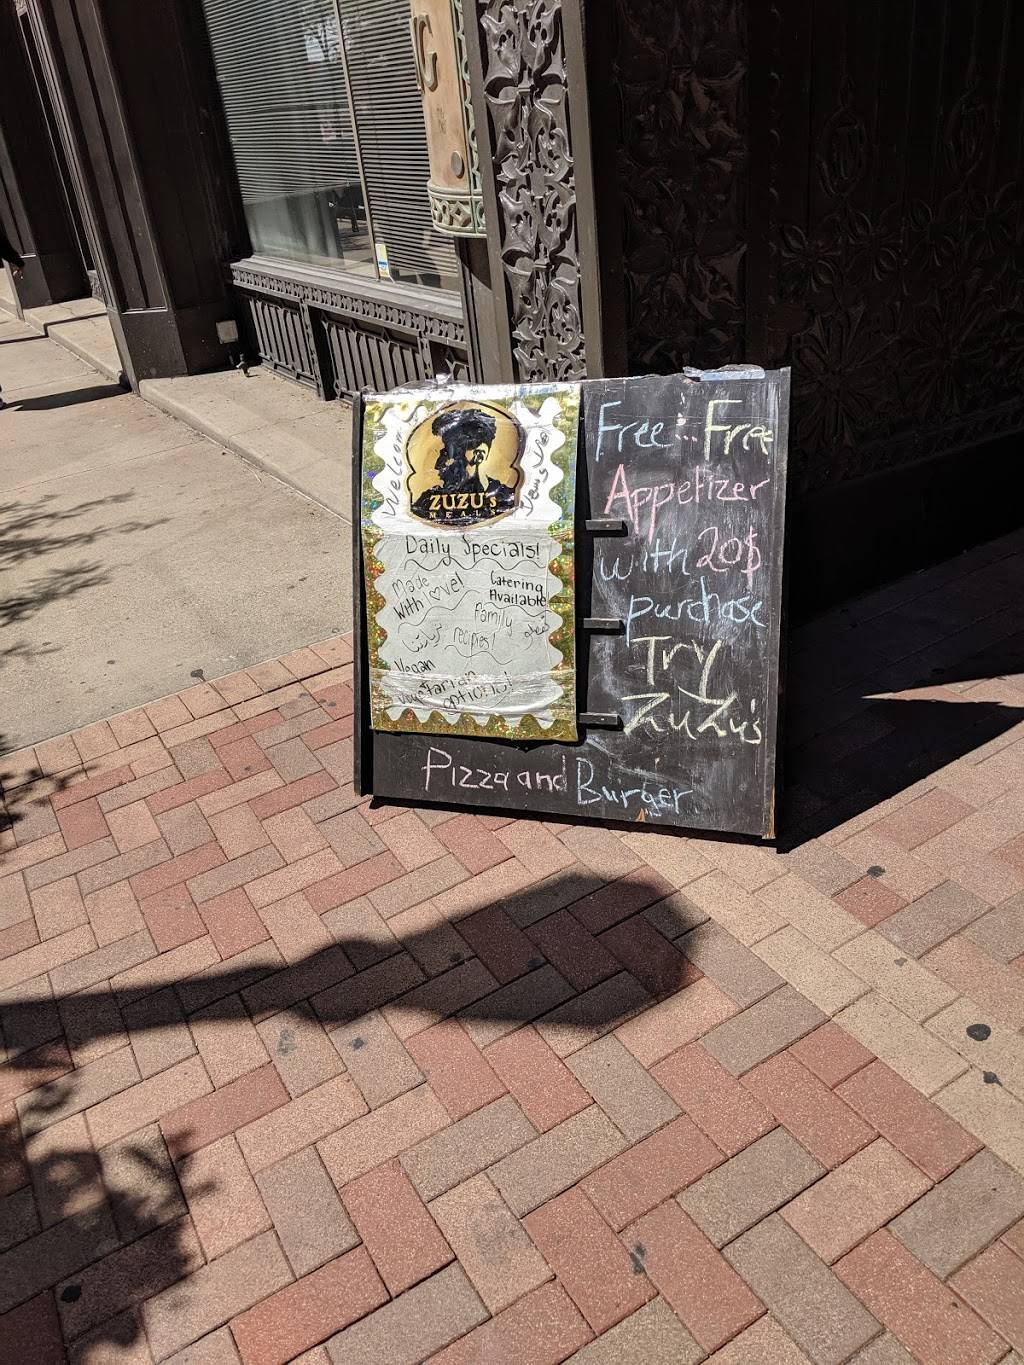 G
Welcome
ZUZU's
MEALS
Daily Specials!
Made
With love!
Catering
Available
Family
recipes!
Vegan
Vegetarian
options!
Free... Free
Appetizer
with 20$
purchase
Try
ZuZu's
Pizza and Burger